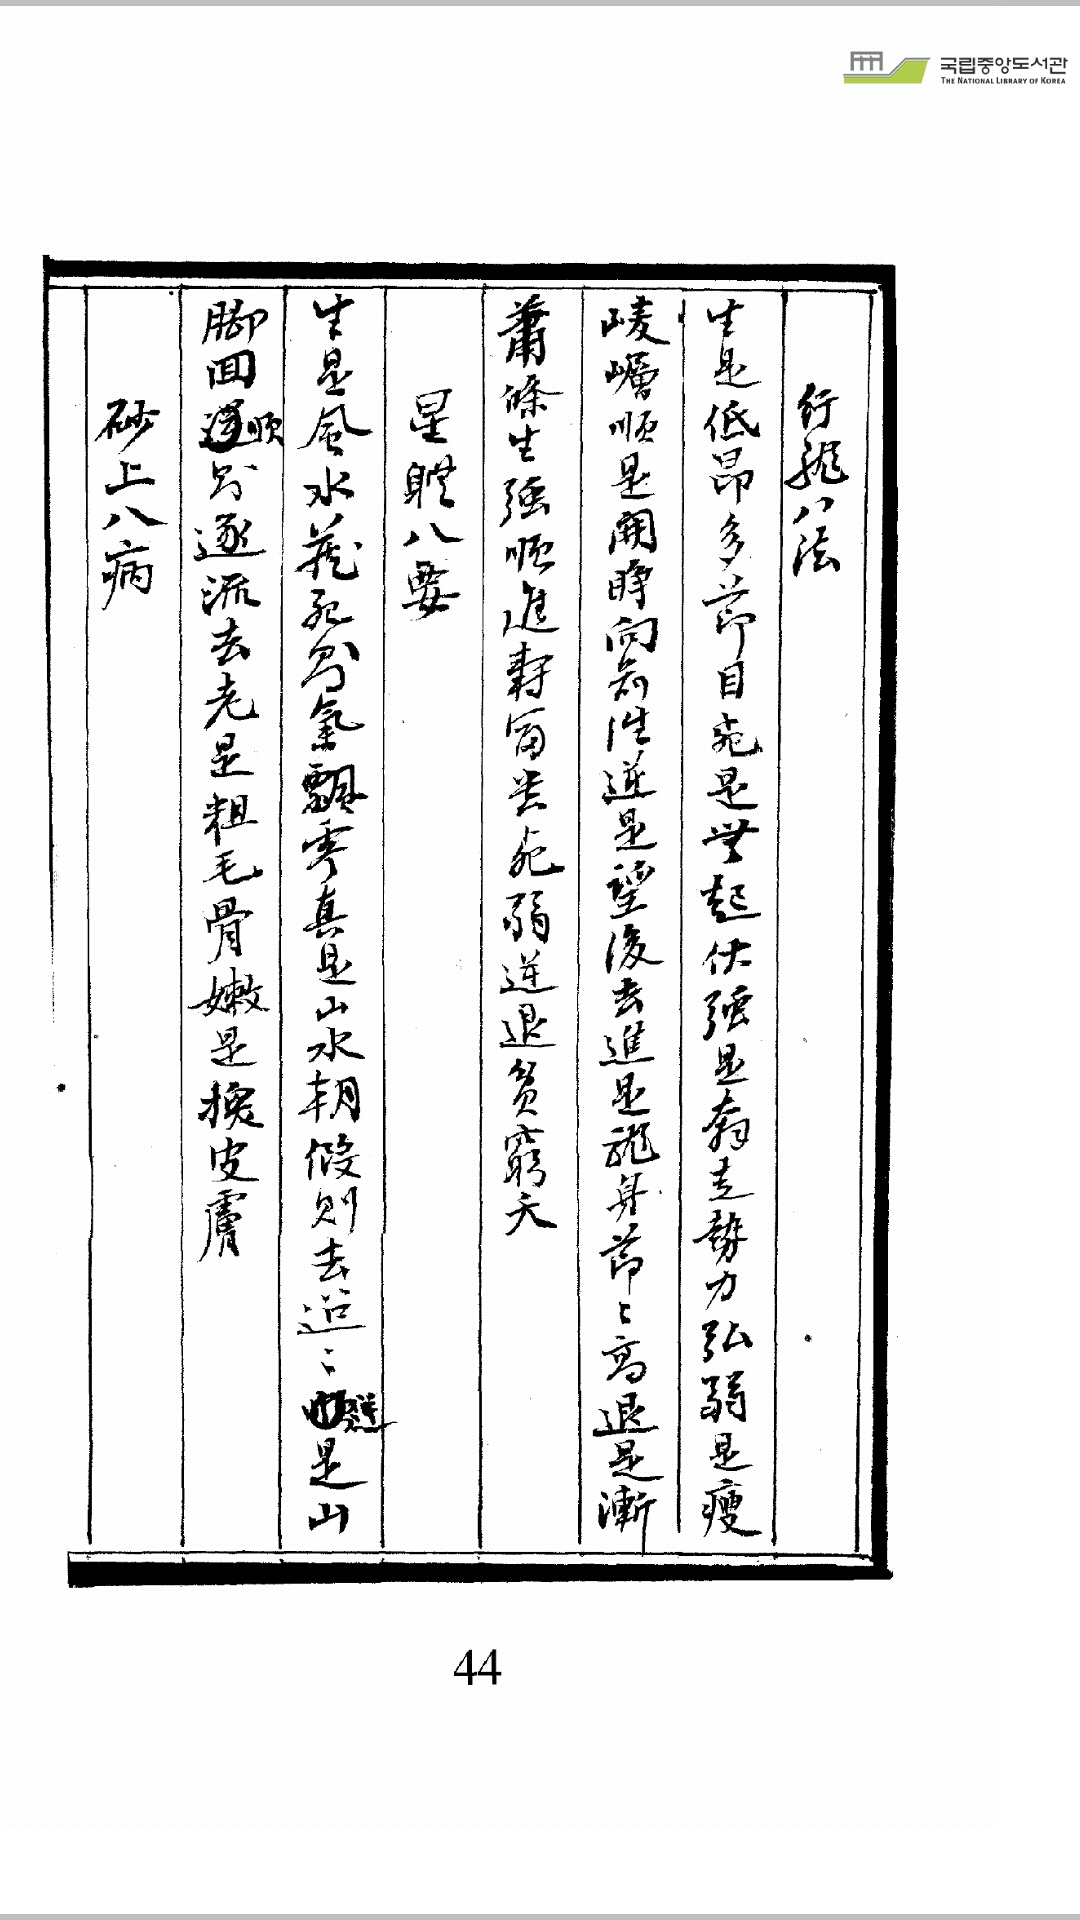 국립중앙도서관
THE NATIONAL LIBRARY OF KOREA
行龍八法
生是低昂多節目死是無起伏強是奔走勢力弘弱是瘦
崚嶒順是開睜向知性逆是望後去進是龍身節〻高退是漸
蕭條生強順進壽富貴死弱逆退貧窮夭
星體八要
生是風水藏死則氣飄零真是山水朝假則去迢〻逆是山
脚回順則逐流去老是粗毛骨嫩是換皮膚
砂上八病
44